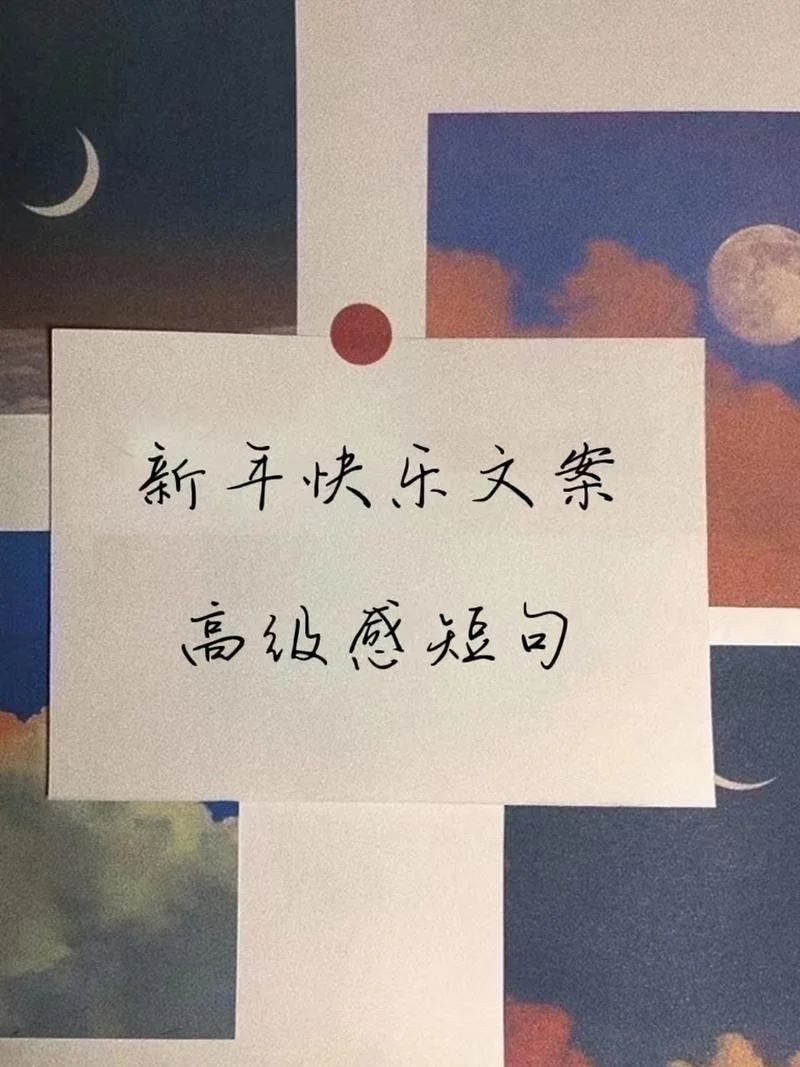 新年快乐文案
高级感短句